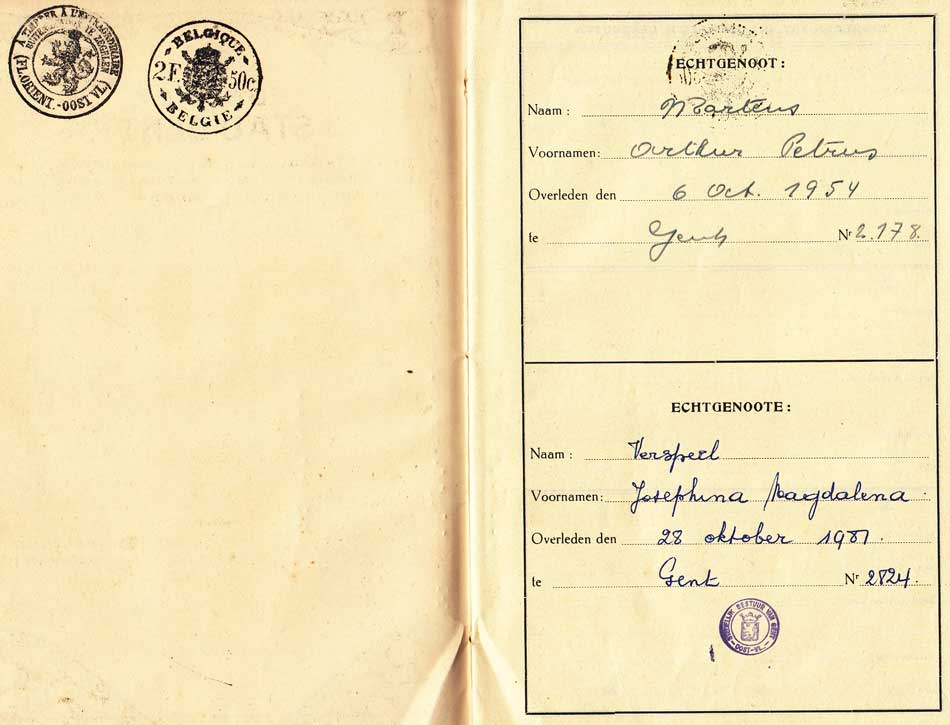 A TIMBRER À L'EXTRAORDINAIRE
BUITENGEWOON TE ZEGELEN
(FL. ORIENT. - OOST VL.)
BELGIQUE
2F. 50c.
BELGIE
ECHTGENOOT :
Naam : Martens
Voornamen: Arthur Petrus
Overleden den 6 Oct. 1954
te Gent Nr 2.178.
ECHTGENOOTE :
Naam : Verspeel
Voornamen: Josephina Magdalena
Overleden den 28 oktober 1981.
te Gent Nr 2824.
STEDELIJK BESTUUR VAN GENT
- OOST-VL. -